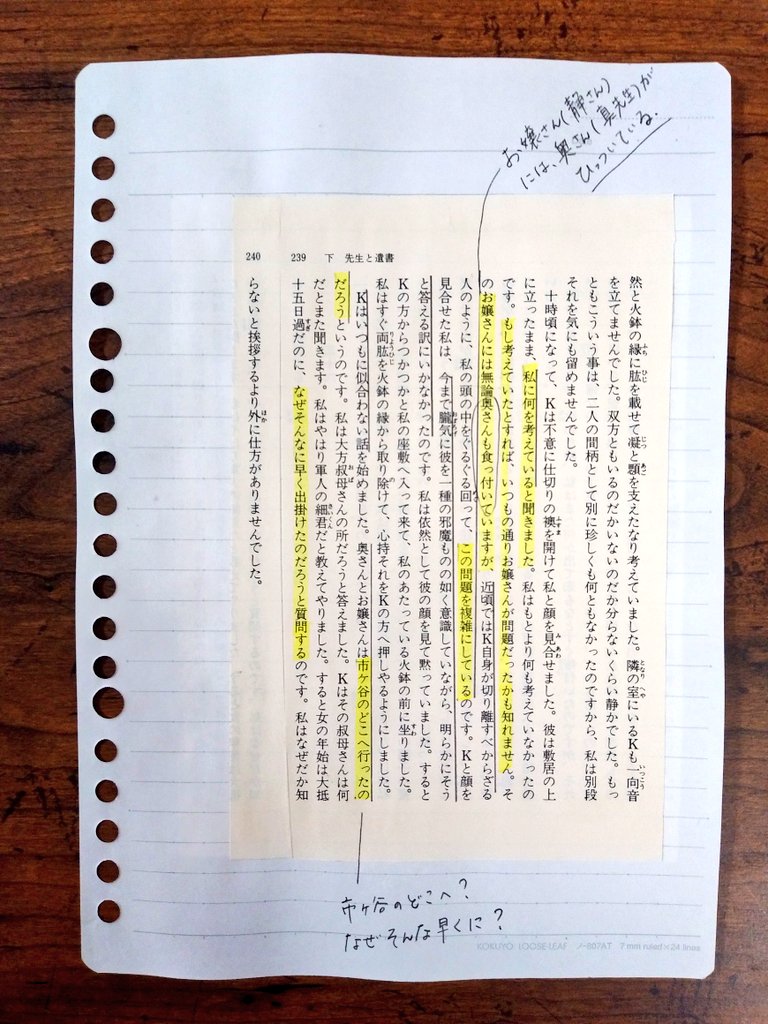 お嬢さん(静さん)
には、奥さん(真先生)が
ひっついている.
239 下 先生と遺書
240
然と火鉢の縁に肱を載せて凝と顋を支えたなり考えていました。隣の室にいるKも一向音
を立てませんでした。双方ともいるのだかいないのだか分らないくらい静かでした。もっ
ともこういう事は、二人の間柄として別に珍しくも何ともなかったのですから、私は別段
それを気にも留めませんでした。
十時頃になって、Kは不意に仕切りの襖を開けて私と顔を見合せました。彼は敷居の上
に立ったまま、私に何を考えていると聞きました。私はもとより何も考えていなかったの
です。もし考えていたとすれば、いつもの通りお嬢さんが問題だったかも知れません。そ
のお嬢さんには無論奥さんも食っ付いていますが、近頃ではK自身が切り離すべからざる
人のように、私の頭の中をぐるぐる回って、この問題を複雑にしているのです。Kと顔を
見合せた私は、今まで朧気に彼を一種の邪魔ものの如く意識していながら、明らかにそう
と答える訳にいかなかったのです。私は依然として彼の顔を見て黙っていました。すると
Kの方からつかつかと私の座敷へ入って来て、私のあたっている火鉢の前に坐りました。
私はすぐ両肱を火鉢の縁から取り除けて、心持それをKの方へ押しやるようにしました。
Kはいつもに似合わない話を始めました。奥さんとお嬢さんは市ケ谷のどこへ行ったの
だろうというのです。私は大方叔母さんの所だろうと答えました。Kはその叔母さんは何
だとまた聞きます。私はやはり軍人の細君だと教えてやりました。すると女の年始は大抵
十五日過だのに、なぜそんなに早く出掛けたのだろうと質問するのです。私はなぜだか知
らないと挨拶するより外に仕方がありませんでした。
市ヶ谷のどこへ?
なぜそんな早くに?
KOKUYO LOOSE-LEAF ノ-807AT 7 mm ruled×24 lines